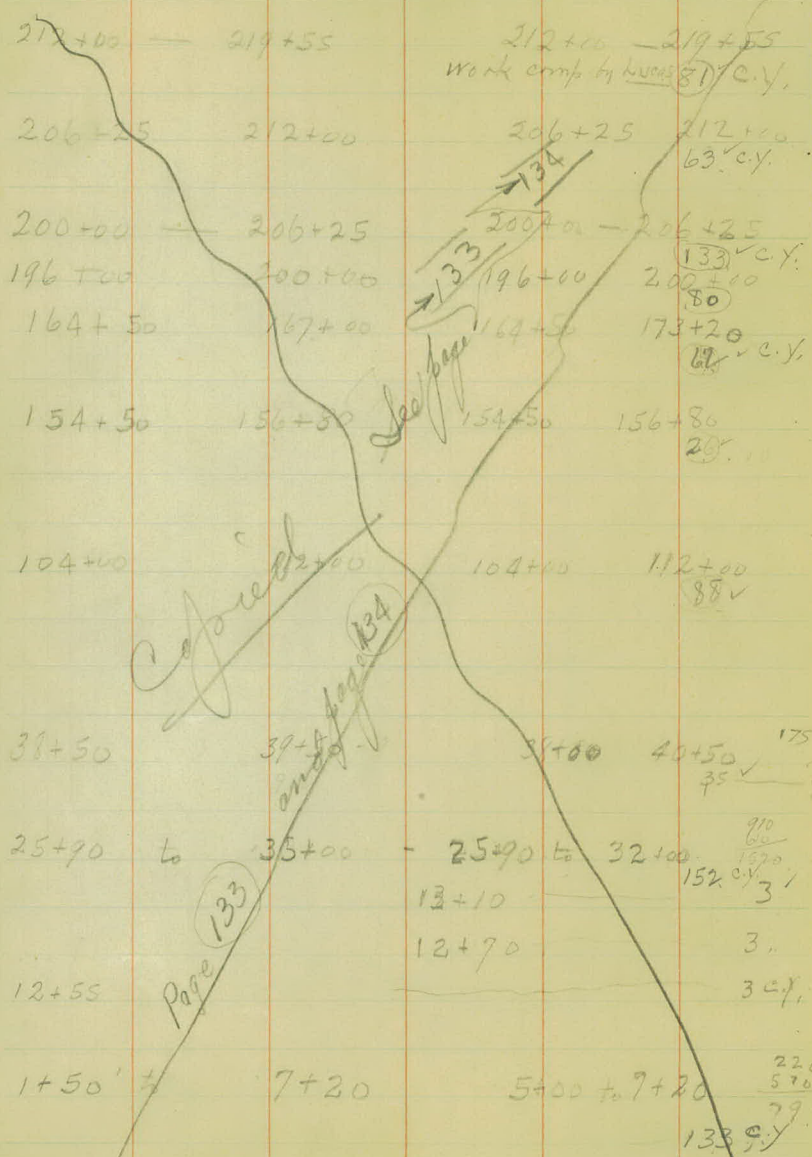 212+00 — 219+55 212+00 — 219+55
Work comp by Lucas 81 c.y.
206+25 212+00 206+25 212+00
63 ✓ c.y.
→ 134
200+00 — 206+25 200+00 — 206+25
133 ✓ c.y.
196+00 200+00 → 133 196+00 200+00
80
164+50 167+00 164+50 173+20
✓ c.y.
See page
154+50 156+80 154+50 156+80
104+00 112+00 104+00 112+00
88 ✓
Copied
and page 134
38+50 39+50 38+00 40+50 175
35 ✓
25+90 to 35+00 - 25+90 to 32+00 910
152 c.y.
13+10 3
12+70 3
12+55 3 c.y.
Page 133
1+50 to 7+20 5+00 to 7+20 220
570
79
133 c.y.